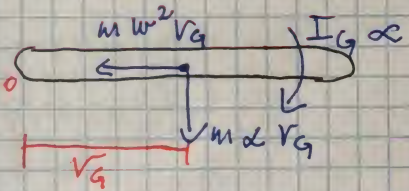 m w² r_G
I_G α
O
m α r_G
r_G